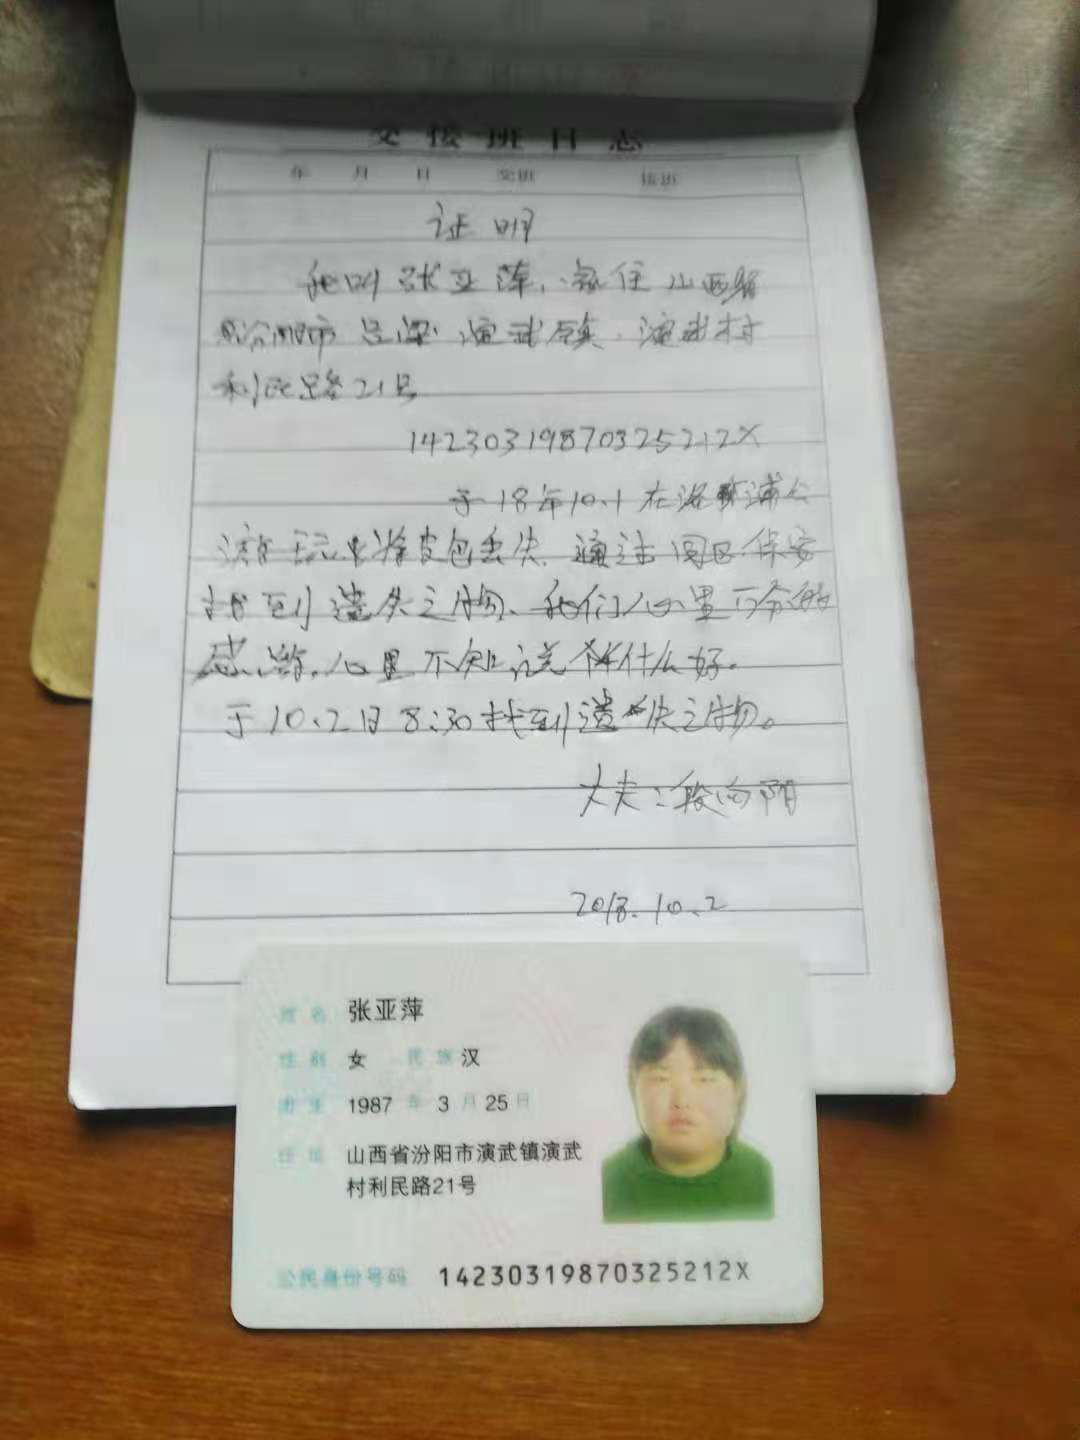 交接班日志
年 月 日 交班 接班
证明
我叫张亚萍、家住山西省
汾阳市吕梁演武镇、演武村
利民路21号
14230319870325212X
于18年10.1在
游玩中将皮包丢失、通过园区保安
找到遗失之物、我们心里万分的
感激,心里不知说什么好。
于10.2日8:30找到遗失之物。
丈夫:段向阳
2018.10.2
姓名 张亚萍
性别 女 民族 汉
出生 1987年3月25日
住址 山西省汾阳市演武镇演武
村利民路21号
公民身份号码 14230319870325212X